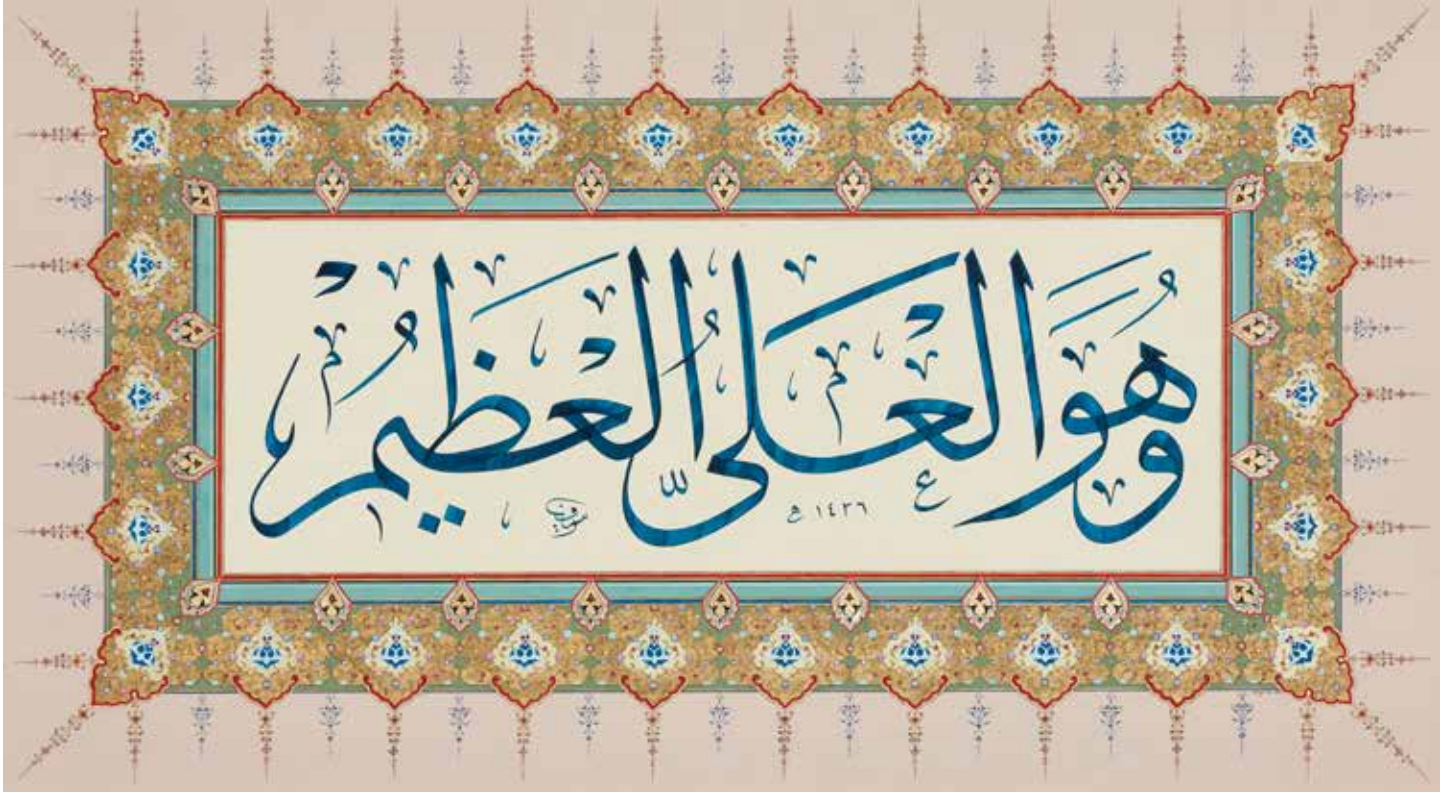 وَهُوَ الْعَلِىُّ الْعَظِيمُ
١٤٣٦ هـ